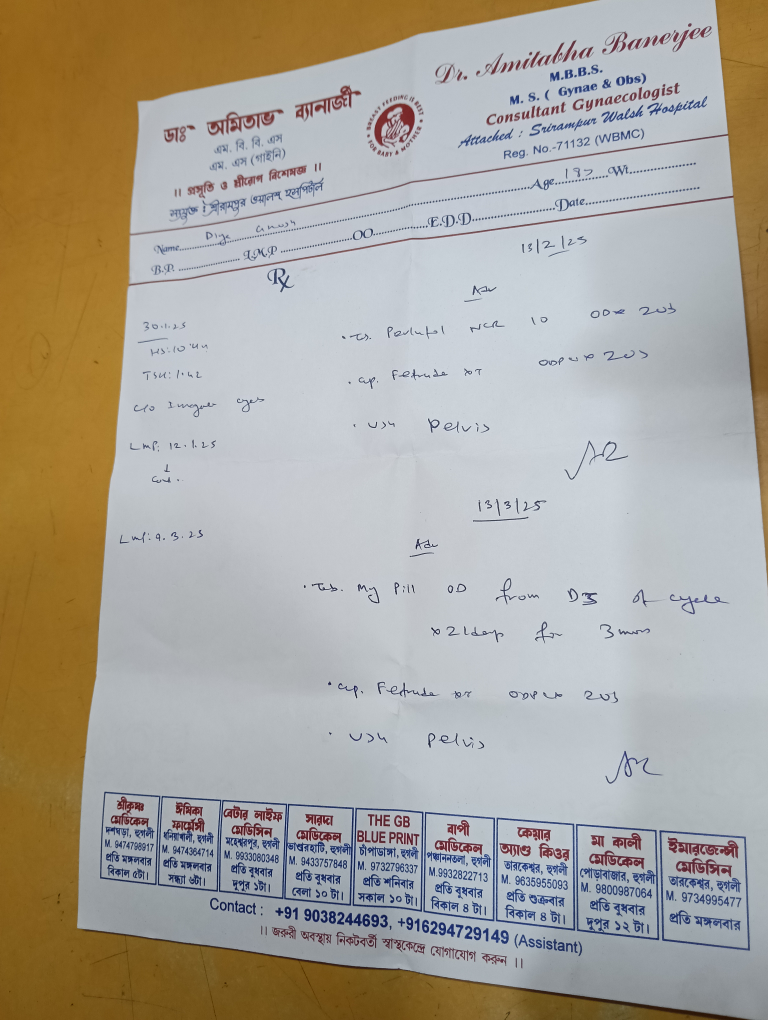 ডাঃ অমিতাভ ব্যানার্জী
এম. বি. বি. এস
এম. এস (গাইনি)
।। প্রসূতি ও স্ত্রীরোগ বিশেষজ্ঞ ।।
সংযুক্ত : শ্রীরামপুর ওয়ালশ হসপিটাল
BREAST FEEDING IS BEST
FOR BABY & MOTHER
Dr. Amitabha Banerjee
M.B.B.S.
M. S. ( Gynae & Obs)
Consultant Gynaecologist
Attached : Srirampur Walsh Hospital
Reg. No.-71132 (WBMC)
Name Diya Ghosh Age Wt.
B.P. L.M.P OO E.D.D. Date
Rx
13/2/25
30.1.25
TSH: 1.42
c/o Irregular
LMP: 12.1.25
Adv
10 OD x
OD
USG Pelvis
13/3/25
LMP: 9.3.25
Adv
Tab. My Pill OD from D3 of cycle
x 21 days for 3 mons
Cap.
USG Pelvis
শ্রীকৃষ্ণ মেডিকেল
দশঘড়া, হুগলী
M. 9474798917
প্রতি মঙ্গলবার
বিকাল ৫টা।
ঈমিকা ফার্মেসী
ধনিয়াখালী, হুগলী
M. 9474364714
প্রতি মঙ্গলবার
সন্ধ্যা ৬টা।
বেটার লাইফ মেডিসিন
মহেশ্বরপুর, হুগলী
M. 9933080348
প্রতি বুধবার
দুপুর ১টা।
সারদা মেডিকেল
ভাণ্ডারহাটি, হুগলী
M. 9433757848
প্রতি বুধবার
বেলা ১০ টা।
THE GB BLUE PRINT
চাঁপাডাঙ্গা, হুগলী
M. 9732796337
প্রতি শনিবার
সকাল ১০ টা।
বাপী মেডিকেল
পঞ্চাননতলা, হুগলী
M.9932822713
প্রতি বুধবার
বিকাল ৪ টা।
কেয়ার অ্যাণ্ড কিওর
তারকেশ্বর, হুগলী
M. 9635955093
প্রতি শুক্রবার
বিকাল ৪ টা।
মা কালী মেডিকেল
পোড়াবাজার, হুগলী
M. 9800987064
প্রতি বুধবার
দুপুর ১২ টা।
ইমারজেন্সী মেডিসিন
তারকেশ্বর, হুগলী
M. 9734995477
প্রতি মঙ্গলবার
Contact : +91 9038244693, +916294729149 (Assistant)
।। জরুরী অবস্থায় নিকটবর্তী স্বাস্থ্যকেন্দ্রে যোগাযোগ করুন ।।